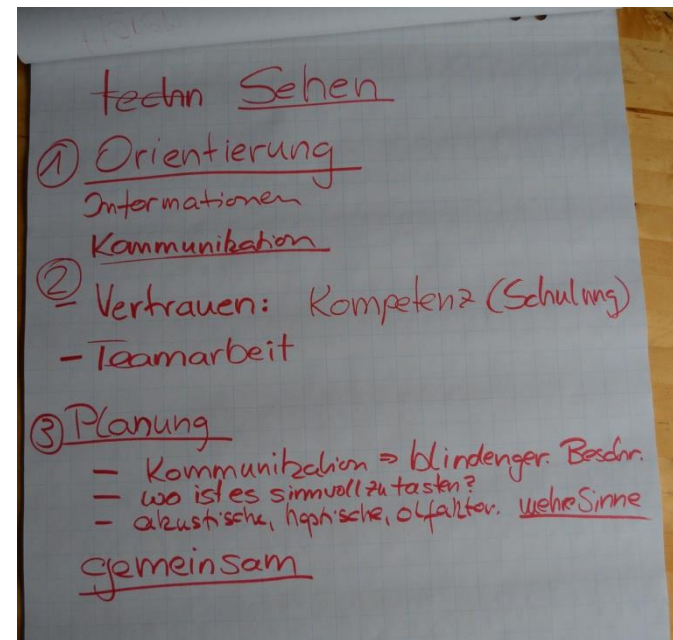 techn Sehen
① Orientierung
Informationen
Kommunikation
② – Vertrauen: Kompetenz (Schulung)
– Teamarbeit
③ Planung
– Kommunikation ⇒ blindenger. Beschr.
– wo ist es sinnvoll zu tasten?
– akustische, haptische, olfaktor. mehr Sinne
gemeinsam